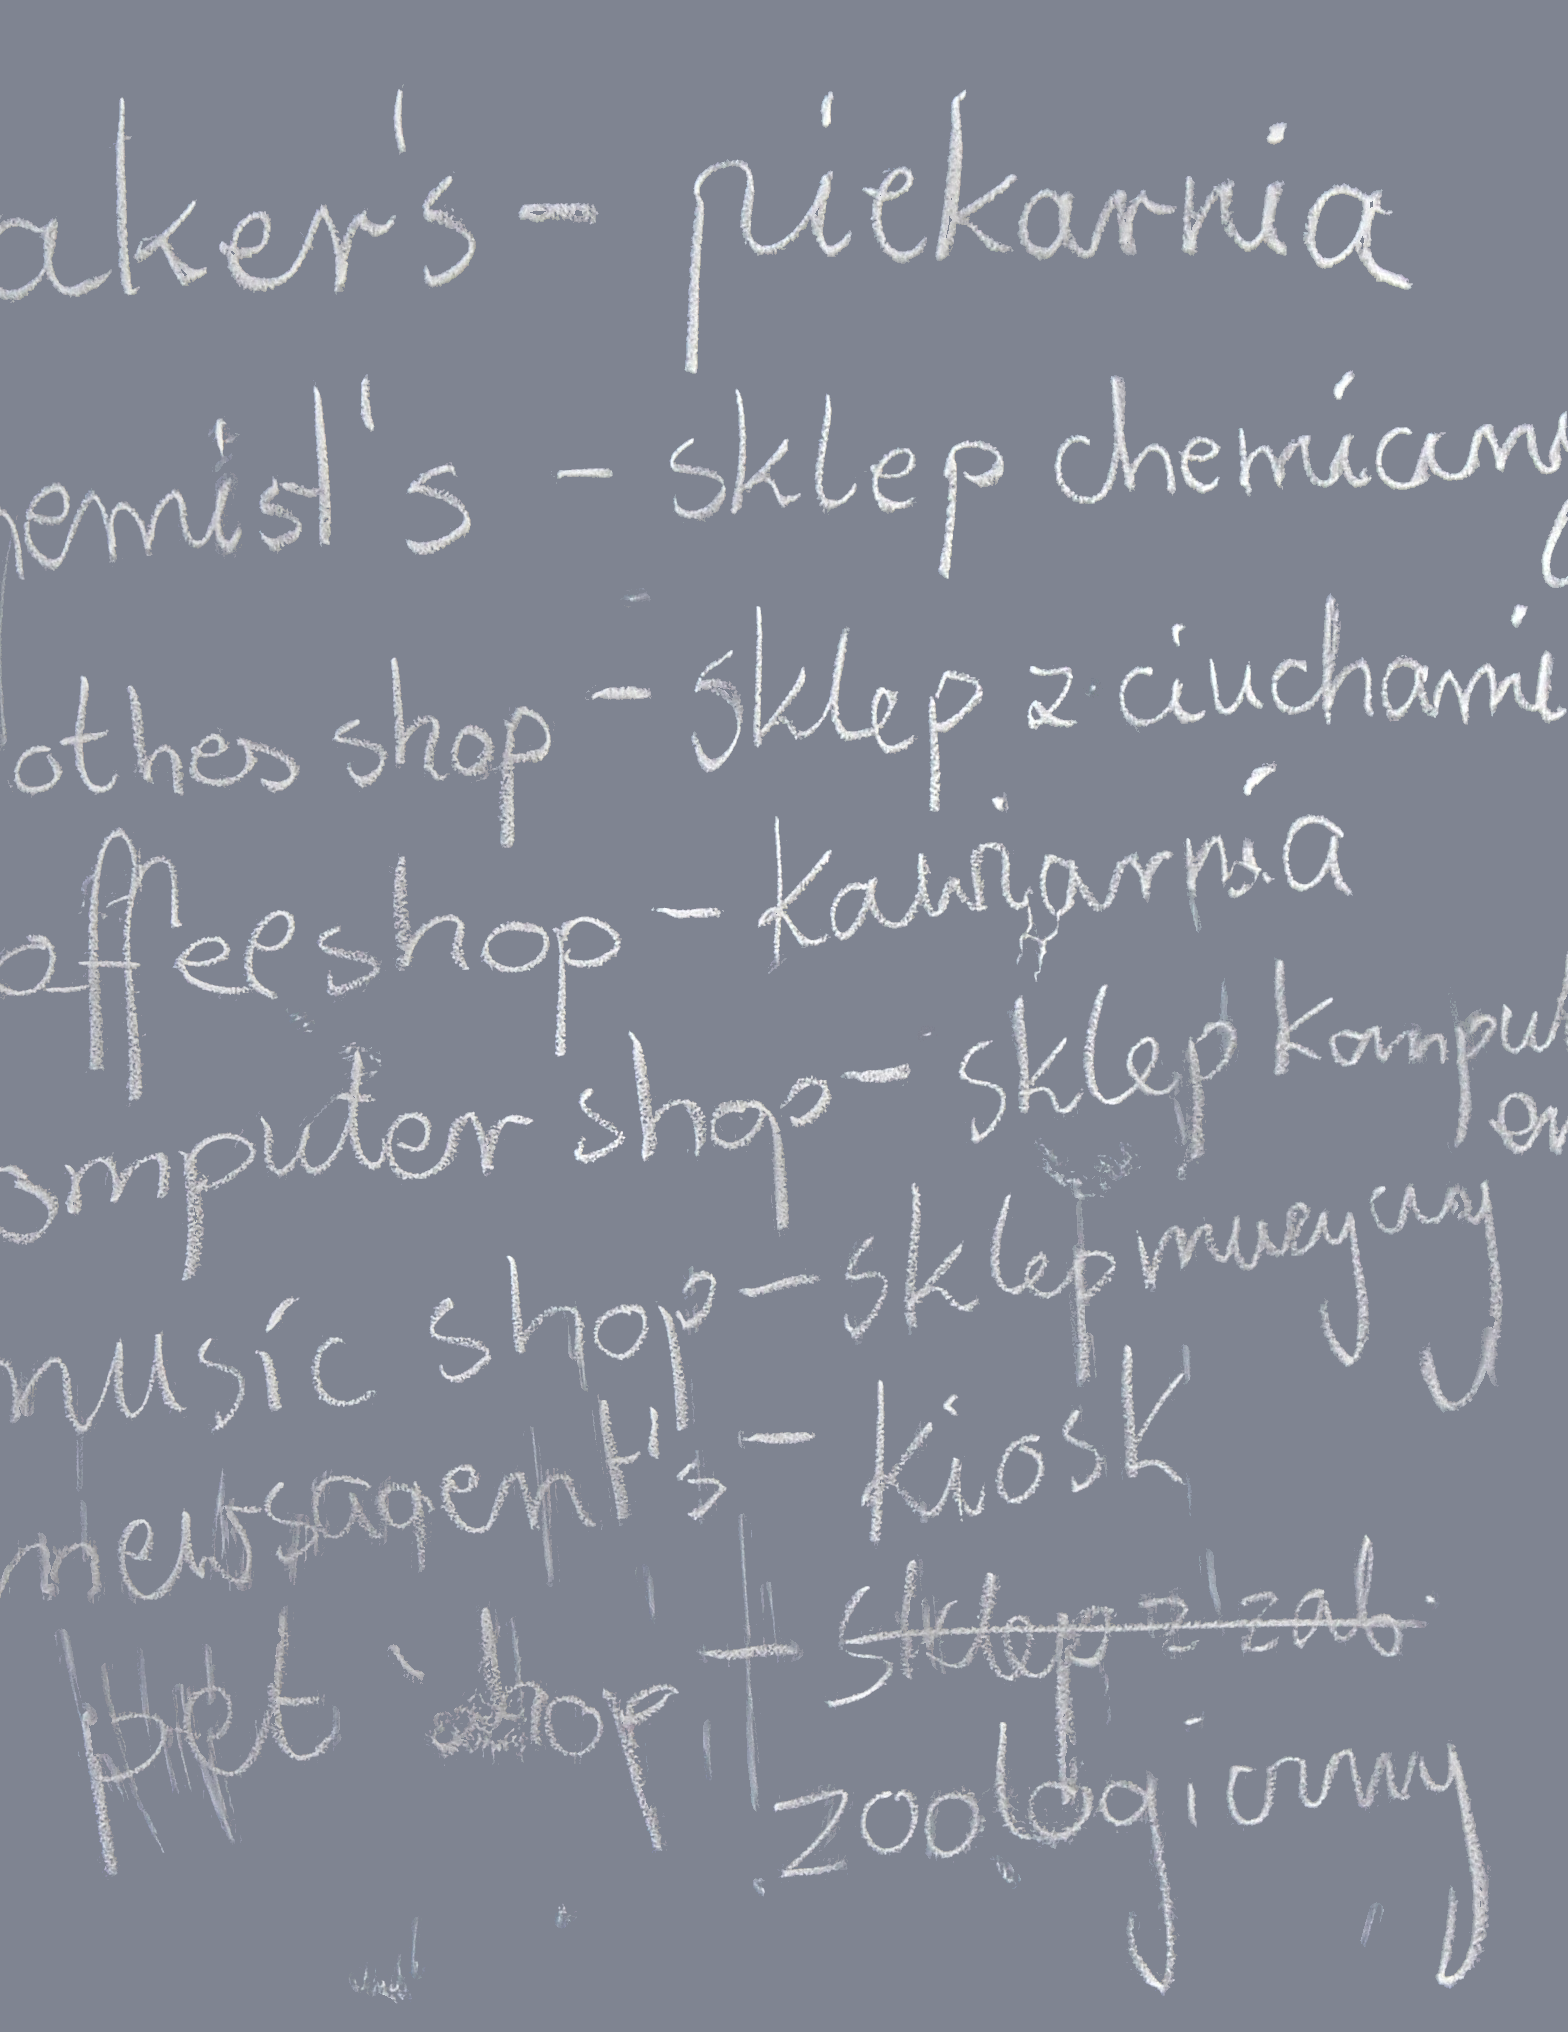 aker's - piekarnia
hemist's - sklep chemiczny
othes shop - sklep z ciuchami
offeeshop - kawiarnia
omputer shop - sklep komput
er
music shop - sklep muzyczny
newsagent's - kiosk
pet shop - sklep z zab.
zoologiczny